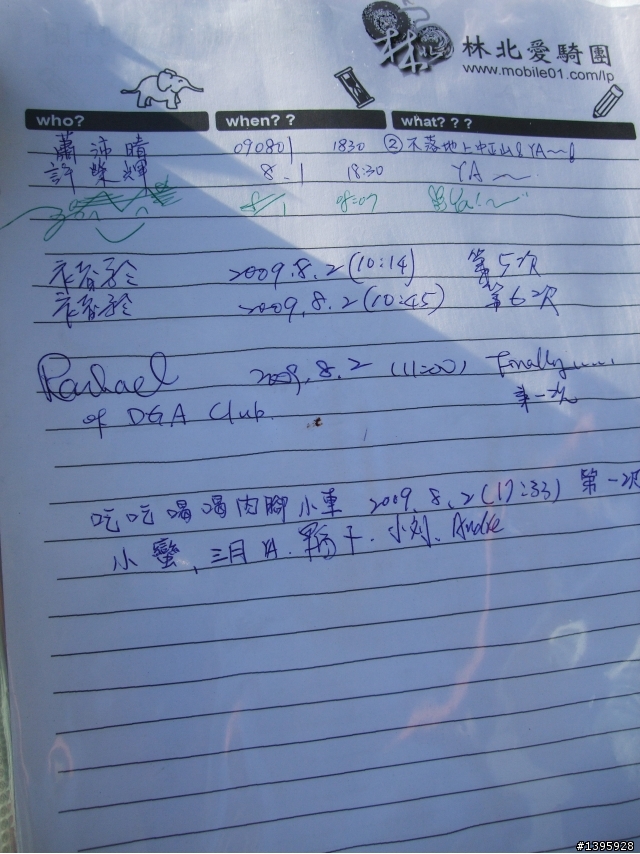 林北愛騎團
www.mobile01.com/lp
who? when?? what???
蕭沛晴 090801 1830 ②不落地上中正山!YA~~!
許榮輝 8.1 18:30 YA~
8/1
2009.8.2(10:14) 第5次
2009.8.2(10:45) 第6次
Rachael 2009.8.2 (11:00) Finally......
of DGA Club. 第一次
吃吃喝喝肉腳小車 2009.8.2(17:33) 第一次
小蠻、三月YA. 小刘、Andre
#1395928